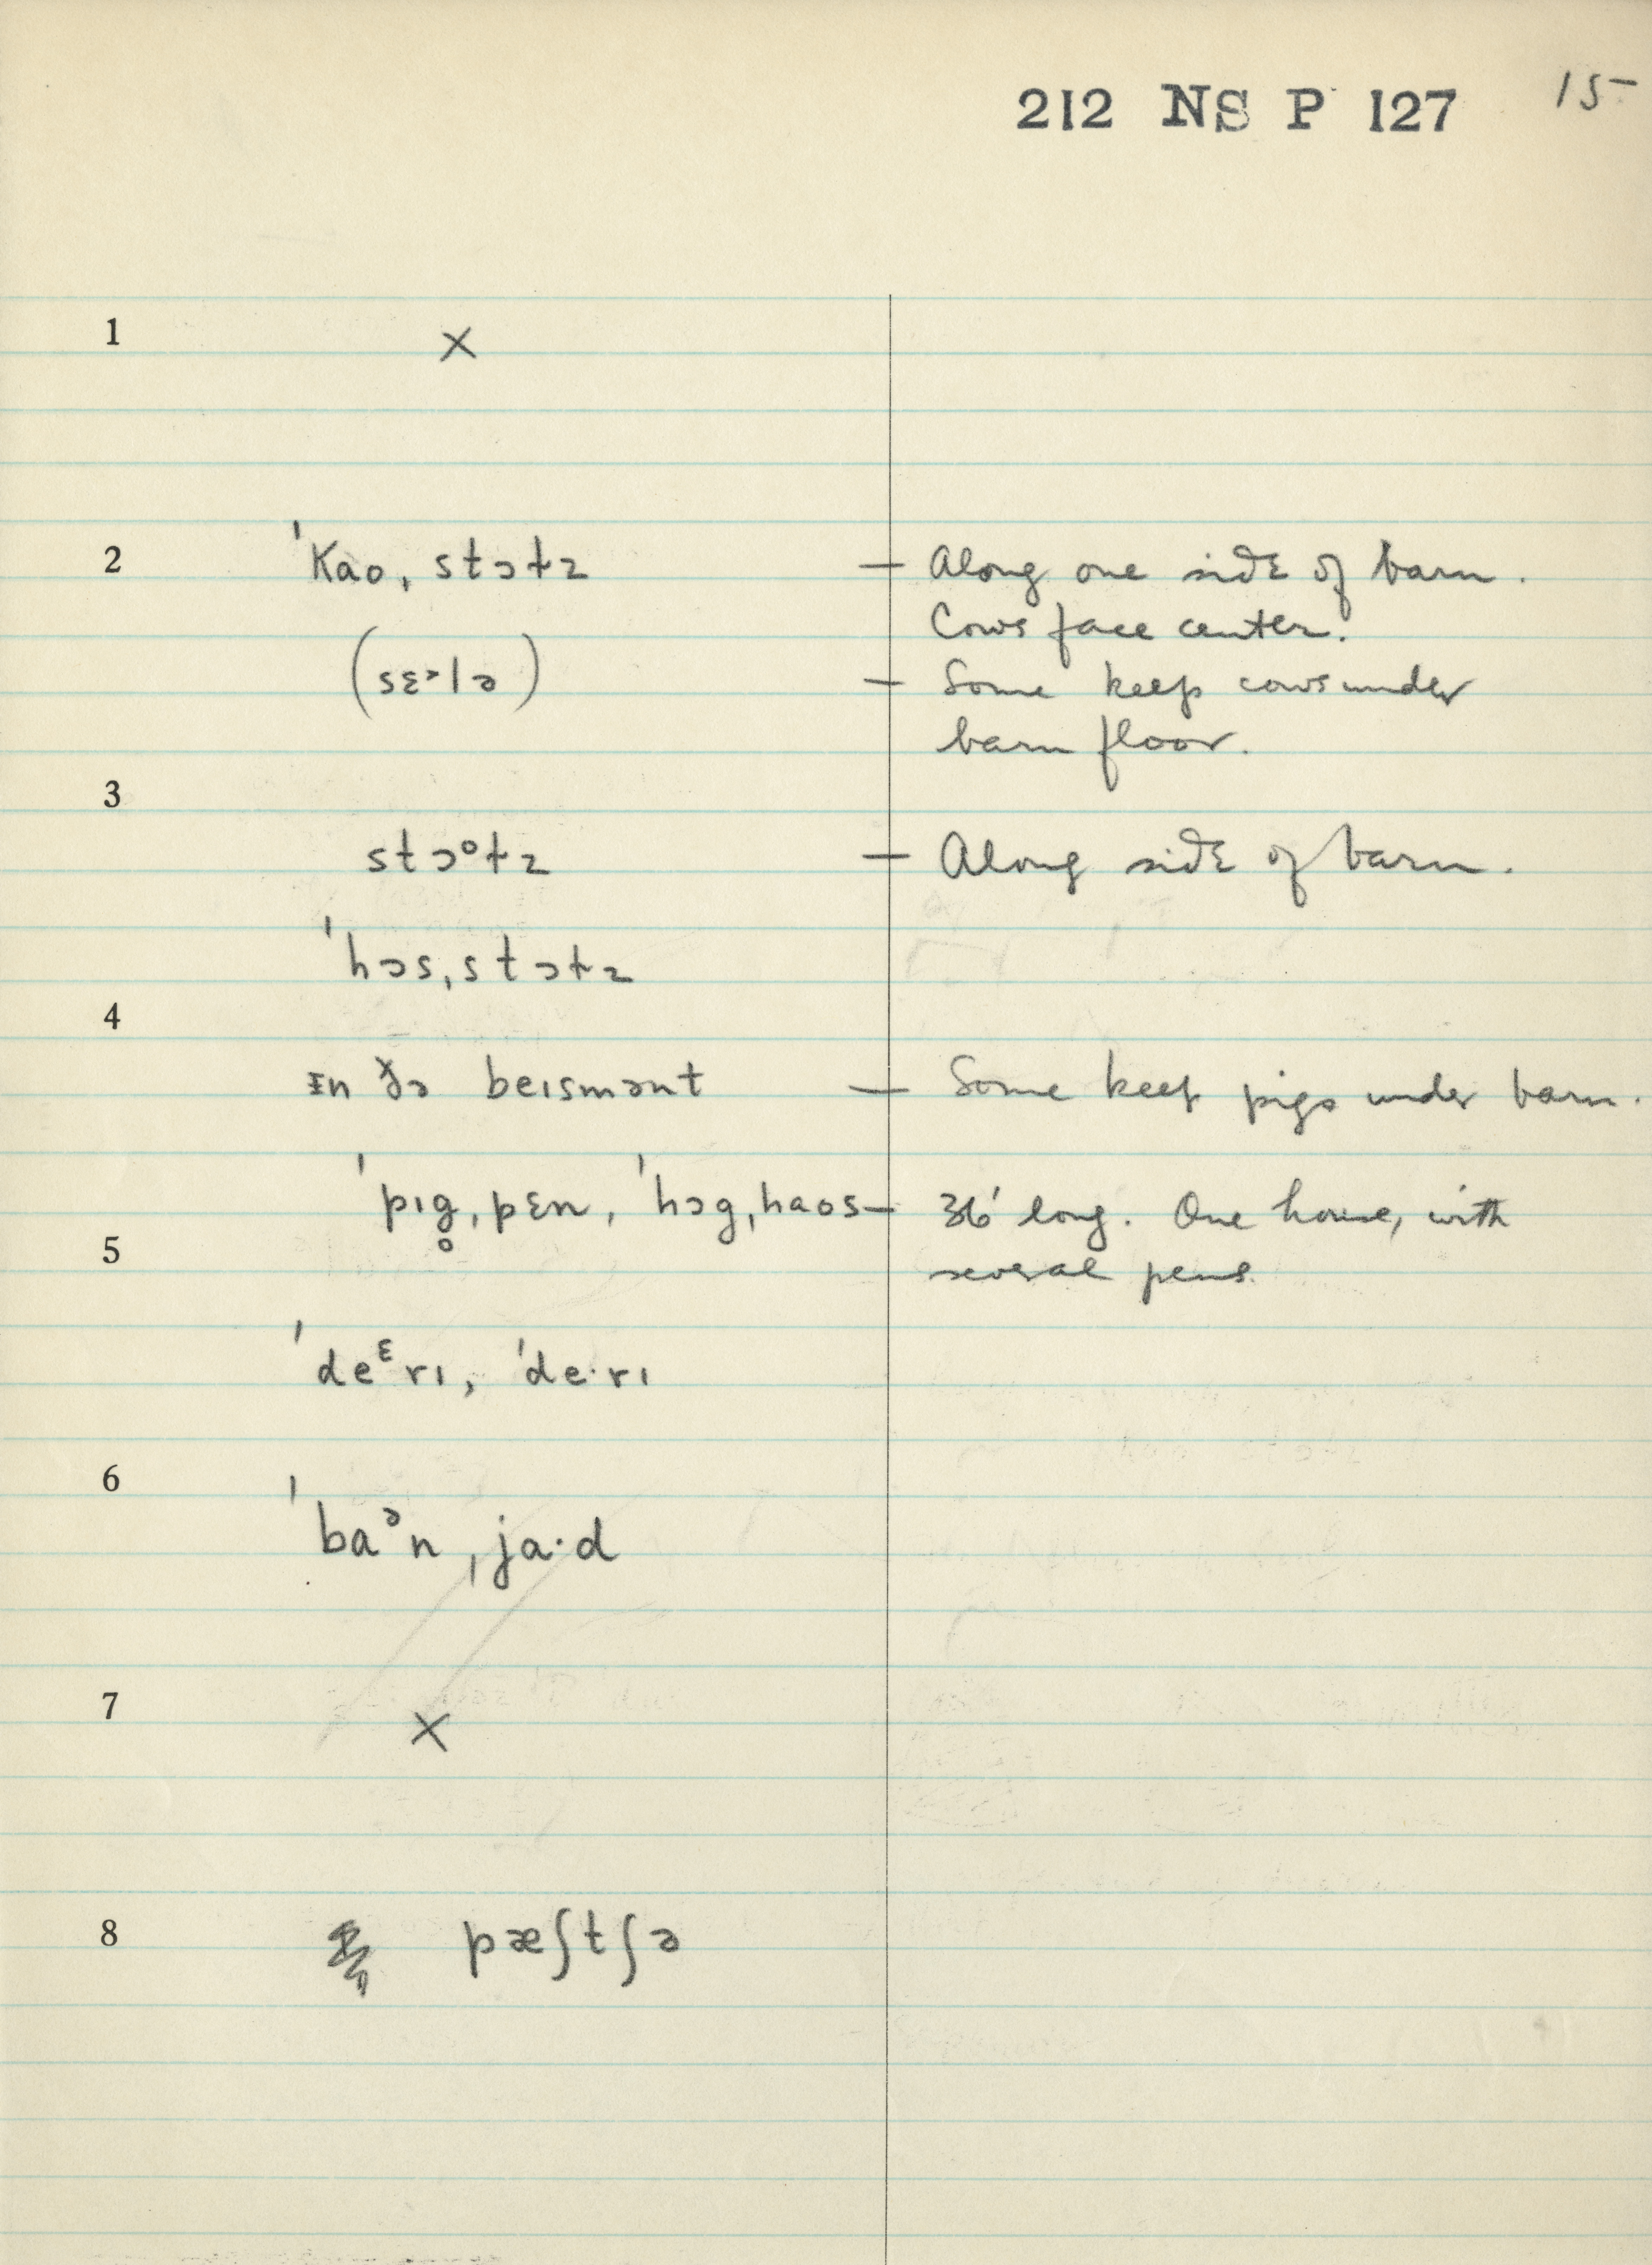 212 NS P 127 15
1 ×
2 ˈkao ˌstɔɫz — Along one side of barn.
Cows face center.
(sɛ˃lə) — Some keep cows under
barn floor.
3
stɔᵒɫz — Along side of barn.
ˈhɔs ˌstɔɫz
4
ɪn ðə beɪsmənt — Some keep pigs under barn.
ˈpɪg̥ ˌpɛn, ˈhɔg ˌhaos — 36' long. One house, with
5 several pens.
ˈdeᵋrɪ, ˈde·rɪ
6
ˈbaᵊn ˌja·d
7 ×
8 pæʃtʃə